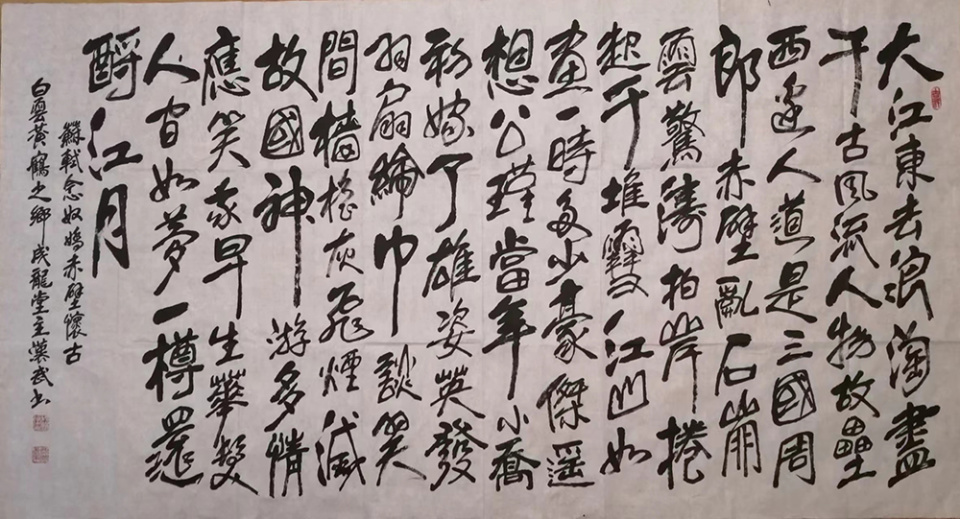 大江東去浪淘盡
千古風流人物故壘
西邊人道是三國周
郎赤壁亂石崩
雲驚濤拍岸捲
起千堆雪江山如
畫一時多少豪傑遥
想公瑾當年小喬
初嫁了雄姿英發
羽扇綸巾談笑
間檣櫓灰飛煙滅
故國神游多情
應笑我早生華髮
人间如夢一樽還
酹江月
蘇軾念奴嬌赤壁懷古
白雲黃鶴之鄉成龍堂主漢武書